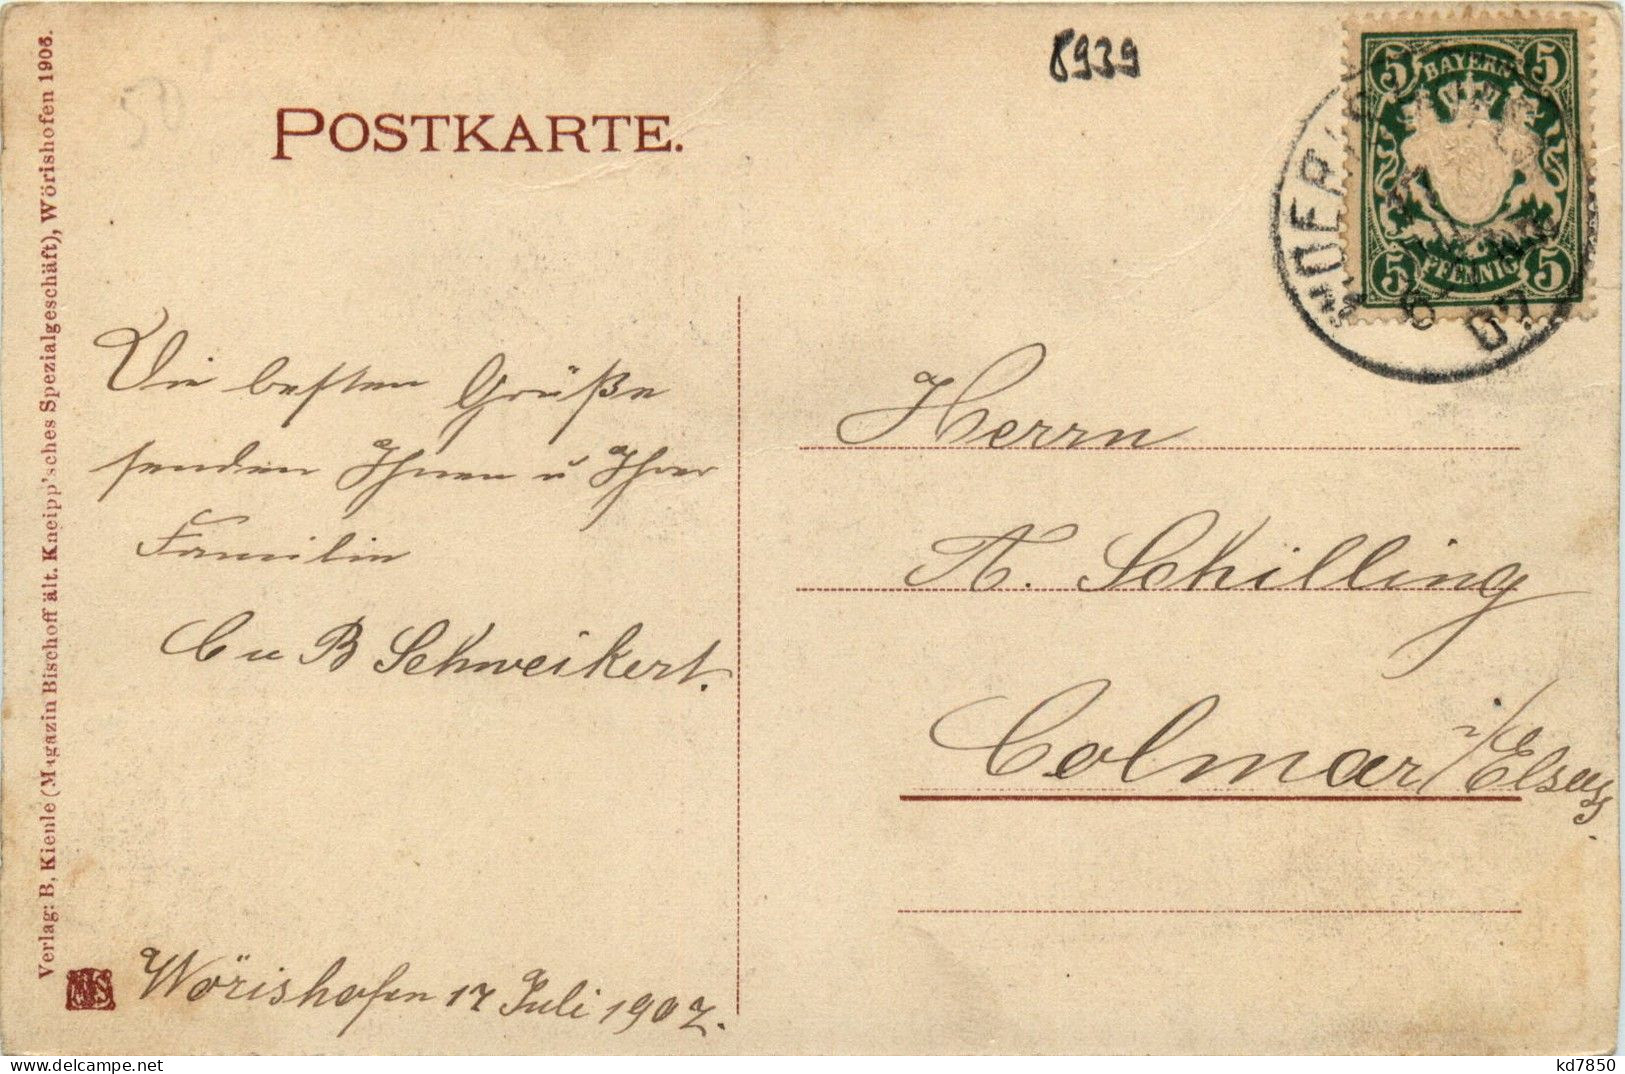 POSTKARTE.
8939
50
5 BAYERN 5
5 PFENNIG 5
17 JUL
07
Die besten Grüße
senden Ihnen u Ihrer
Familie
C u B Schweikert.
Wörishofen 17 Juli 1907.
Herrn
A. Schilling
Colmar i/Elsass.
Verlag: B. Kienle (Magazin Bischoff ält. Kneipp'sches Spezialgeschäft), Wörishofen 1906.
kd7850